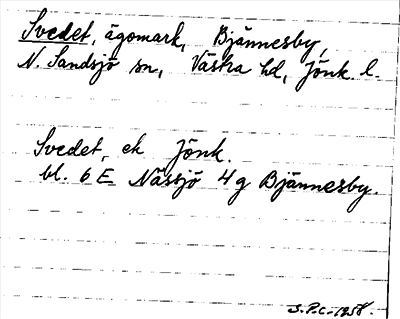 Svedet, ägomark, Bjännesby,
N. Sandsjö sn, Västra hd, Jönk. l.
Svedet, ek Jönk.
bl. 6 E Nässjö 4 g Bjännesby.
S.P.C. 1958.